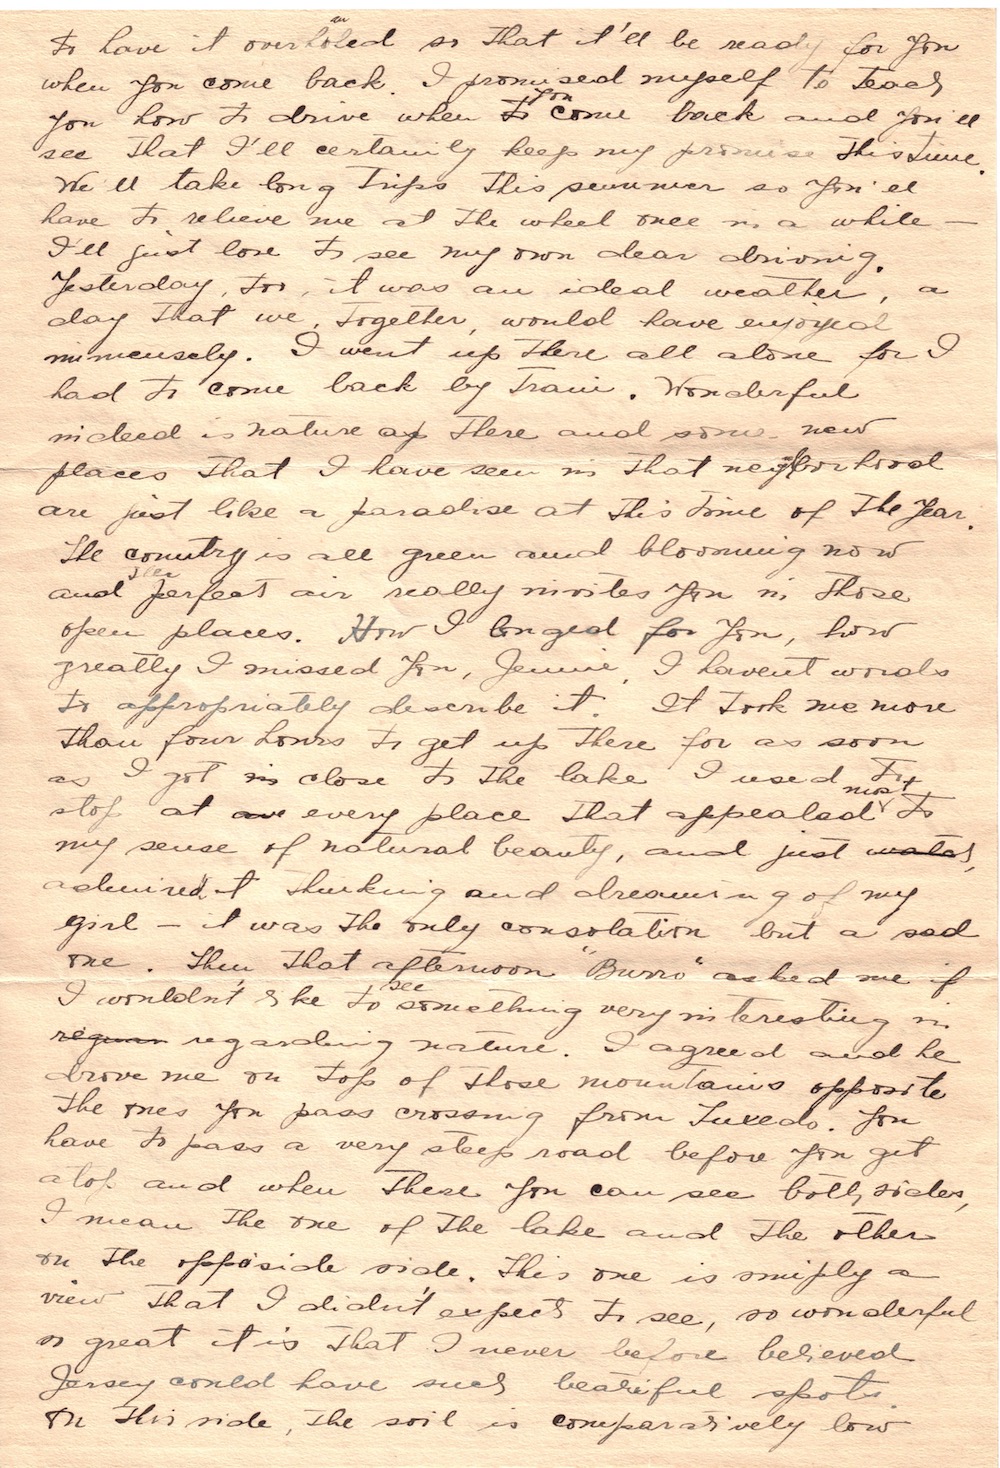 to have it overhauled so that it'll be ready for you
when you come back. I promised myself to teach
you how to drive when you come back and you'll
see that I'll certainly keep my promise this time.
We'll take long trips this summer so you'll
have to relieve me at the wheel once in a while —
I'll just love to see my own dear driving.
Yesterday, too, it was an ideal weather, a
day that we, together, would have enjoyed
immensely. I went up there all alone for I
had to come back by train. Wonderful
indeed is nature up there and some new
places that I have seen in that neighborhood
are just like a paradise at this time of the year.
The country is all green and blooming now
and the perfect air really invites you in those
open places. How I longed for you, how
greatly I missed you, Jennie, I havent words
to appropriately describe it. It took me more
than four hours to get up there for as soon
as I got in close to the lake I used to
stop at every place that appealed most to
my sense of natural beauty, and just watch,
admired it thinking and dreaming of my
girl — it was the only consolation but a sad
one. Then that afternoon "Burro" asked me if
I wouldn't like to see something very interesting in
regarding nature. I agreed and he
drove me on top of those mountains opposite
the ones you pass crossing from Tuxedo. You
have to pass a very steep road before you get
atop and when there you can see both sides,
I mean the one of the lake and the other
on the opposide side. This one is simply a
view that I didn't expect to see, so wonderful
so great it is that I never before believed
Jersey could have such beatiful spots.
On this side, the soil is comparatively low